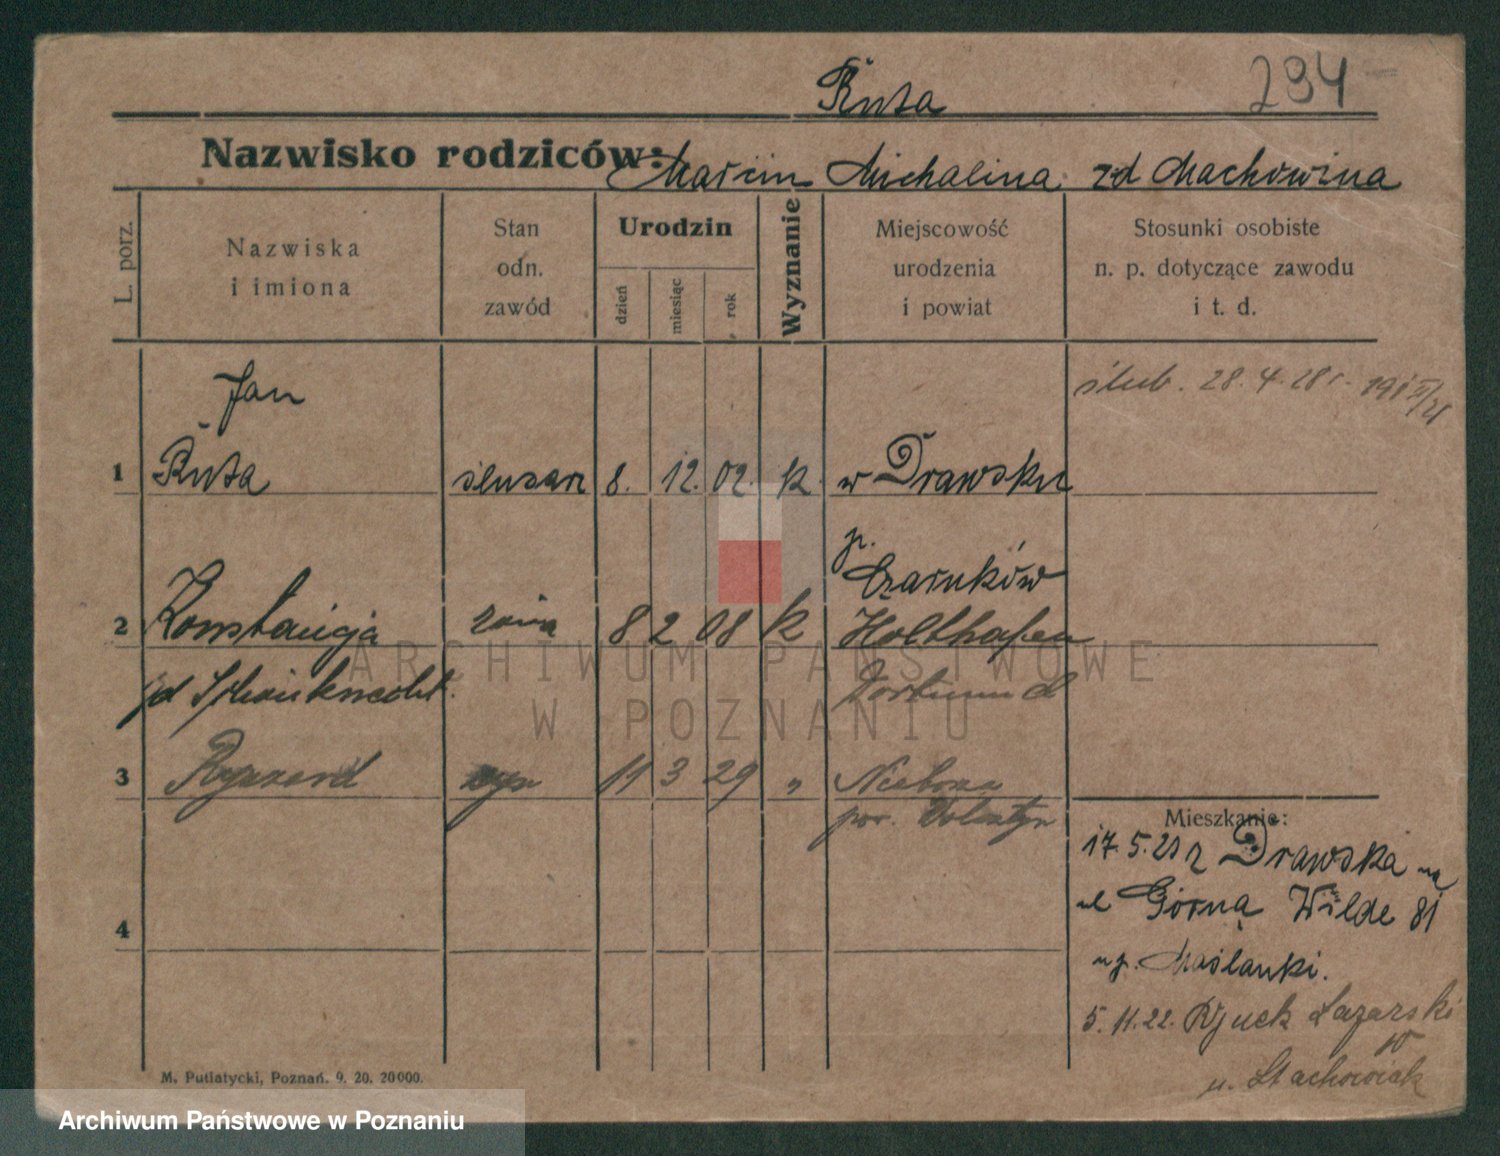 Ruta 294
Nazwisko rodziców: Marcin Michalina zd Machowina
L. porz.
Nazwiska
i imiona
Stan
odn.
zawód
Urodzin
dzień
miesiąc
rok
Wyznanie
Miejscowość
urodzenia
i powiat
Stosunki osobiste
n. p. dotyczące zawodu
i t. d.
Jan ślub. 28. 4. 28 r.
1 Ruta ślusarz 8. 12. 02. k. w Drawsku
p.
Czarnków
2 Konstancja żona 8 2 08 k Holthausen
Dortmund
3 Ryszard syn 11 3 29 "
pow.
4
Mieszkanie:
17. 5. 21 z Drawska na
ul Górną Wilde 81
u p. Maślanki.
5. 11. 22. Rynek Łazarski
u. Stachowiak
M. Putiatycki, Poznań. 9. 20. 20000.
ARCHIWUM PAŃSTWOWE
W POZNANIU
Archiwum Państwowe w Poznaniu